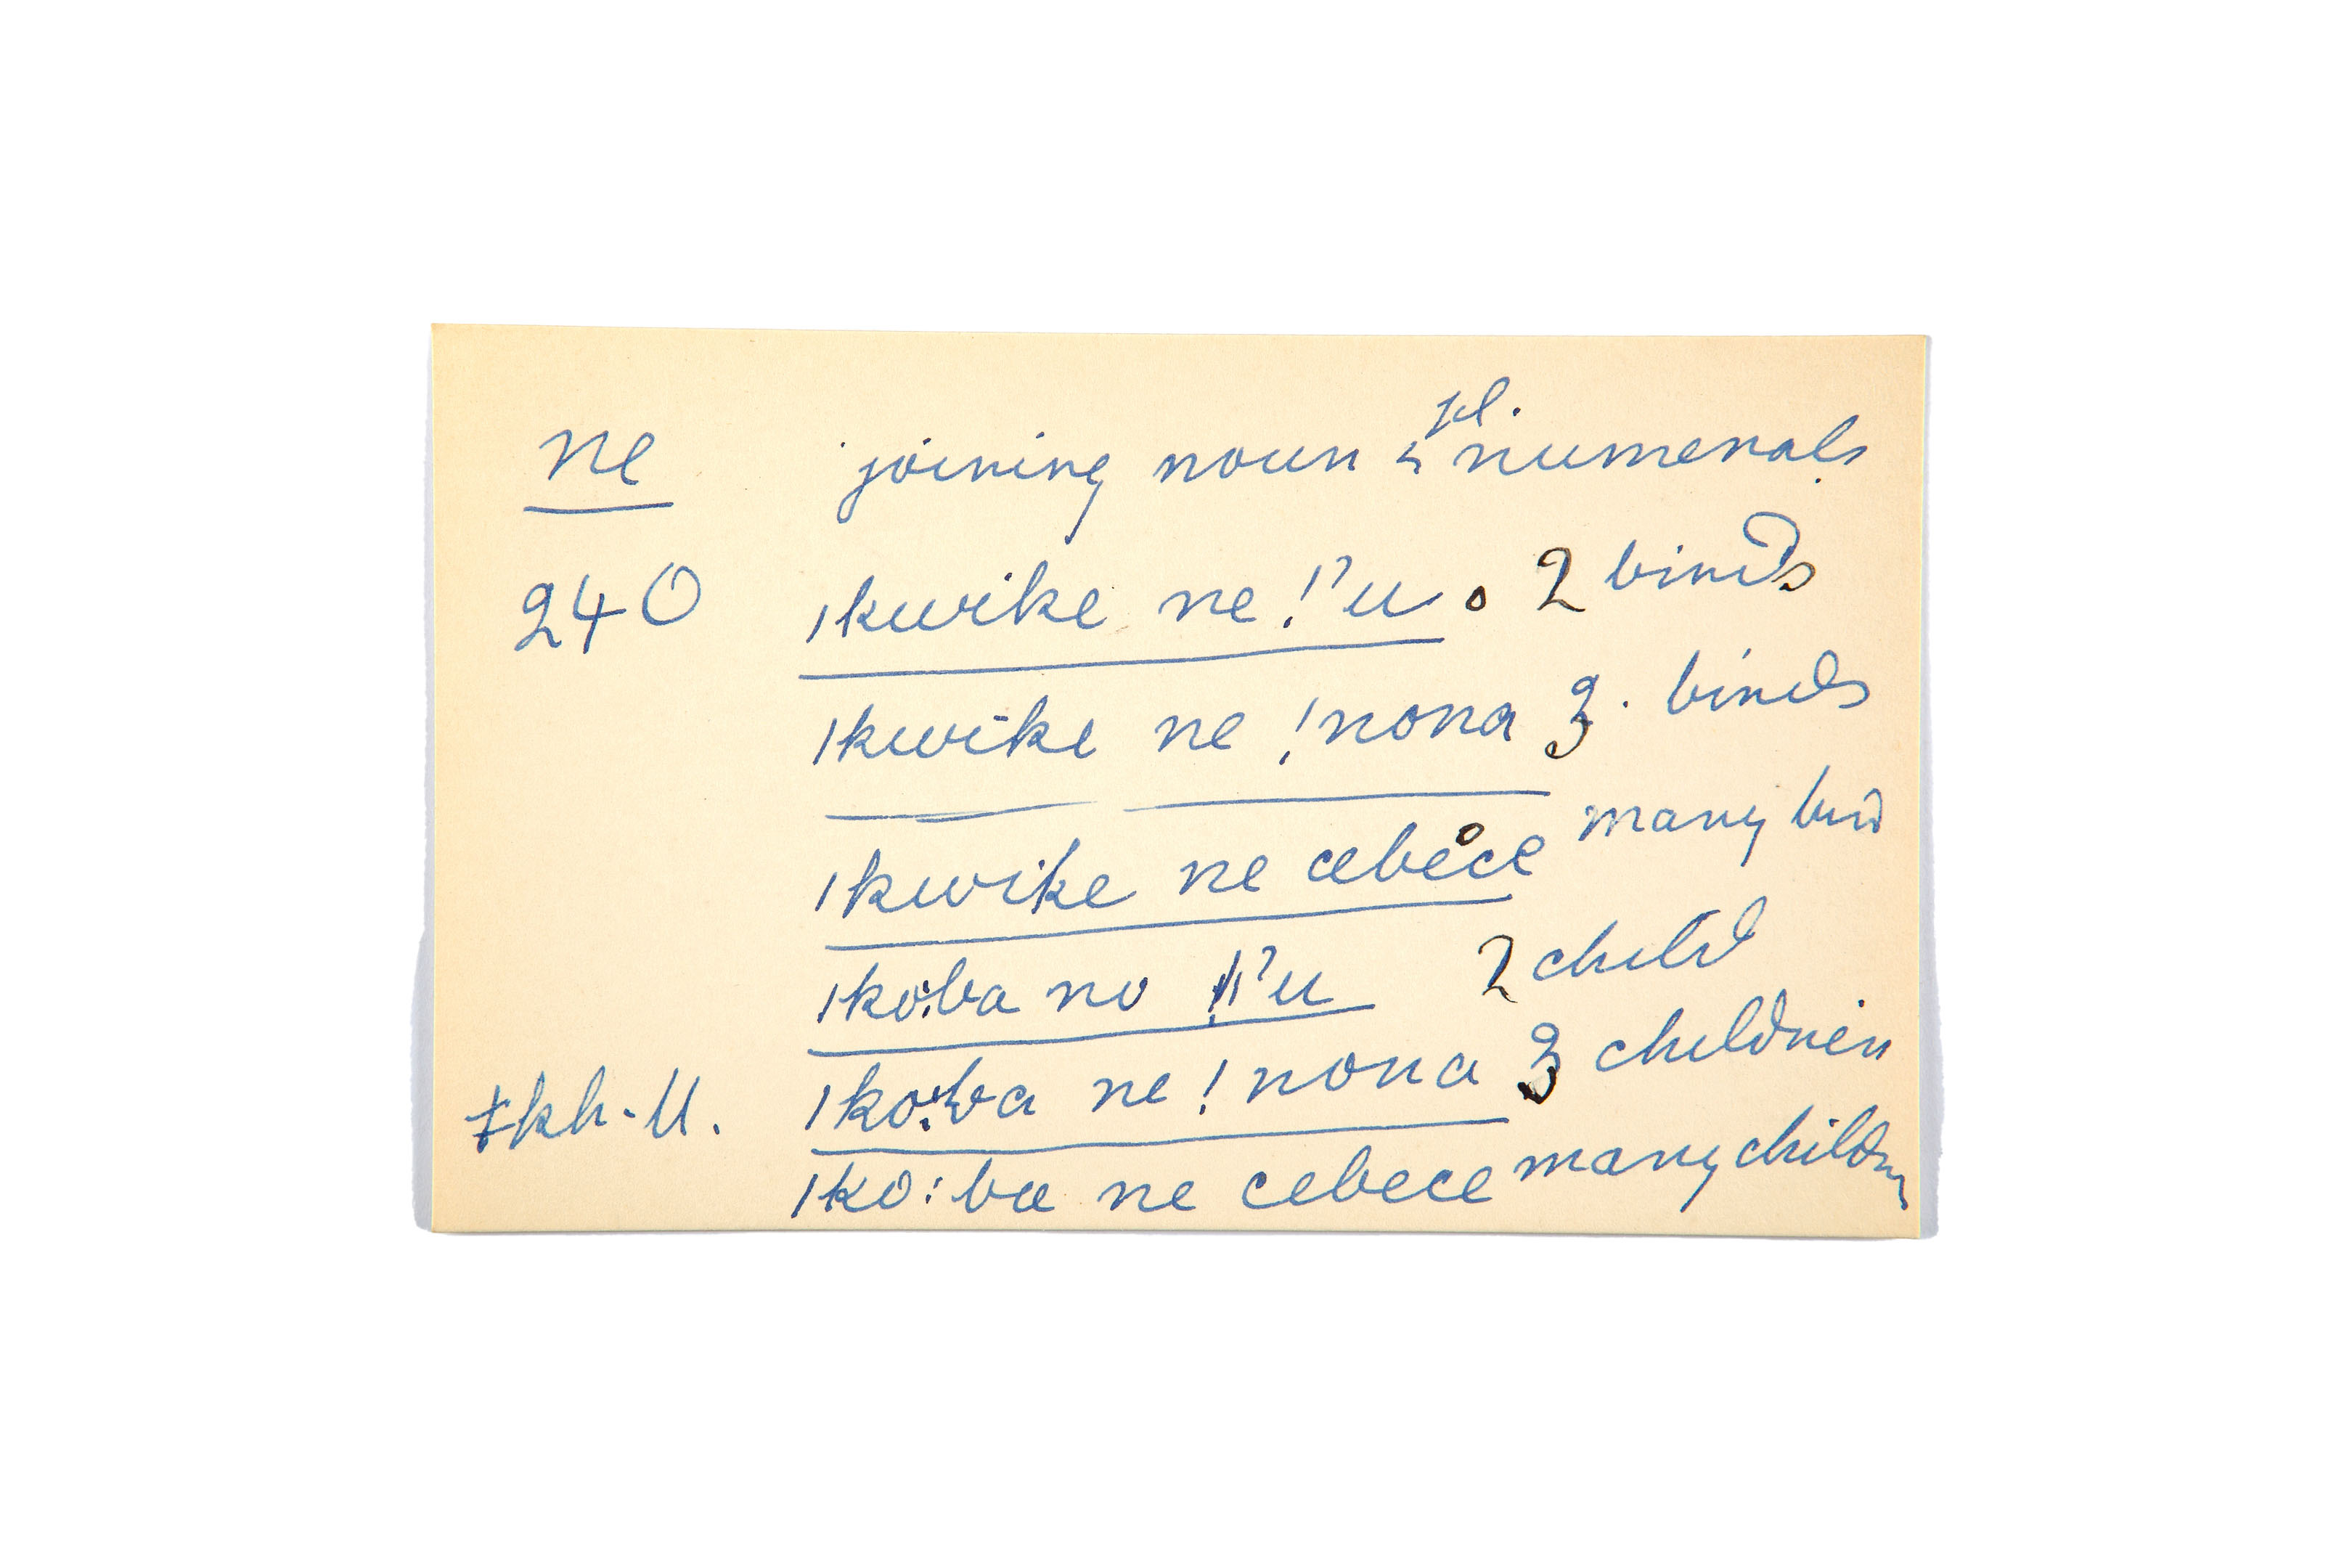 ne joining noun & pl. numerals
240 ǀkwike ne !ʼu. 2 birds
ǀkwike ne !nona 3. birds
ǀkwike ne cebece many bird
ǀko:ba no !ʼu 2 child
ǂkh-ll. ǀko:ba ne !nona 3 children
ǀko:ba ne cebece many children